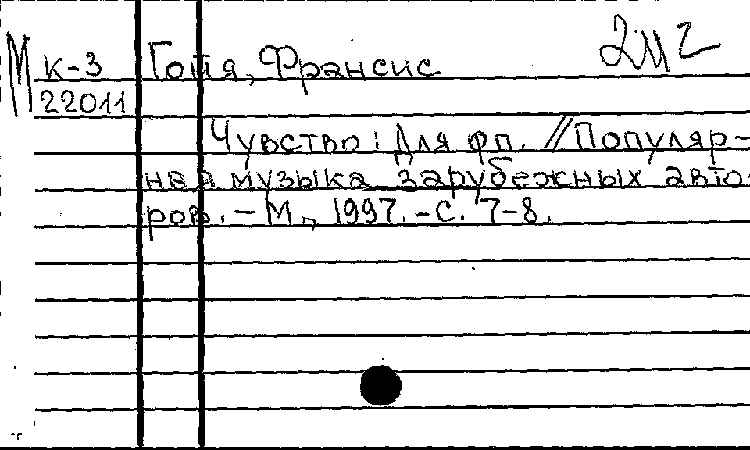 М К-3 Гойя, Франсис
22011
Чувство: Для фп. // Популяр-
ная музыка зарубежных авто-
ров. - М., 1997. - С. 7-8.